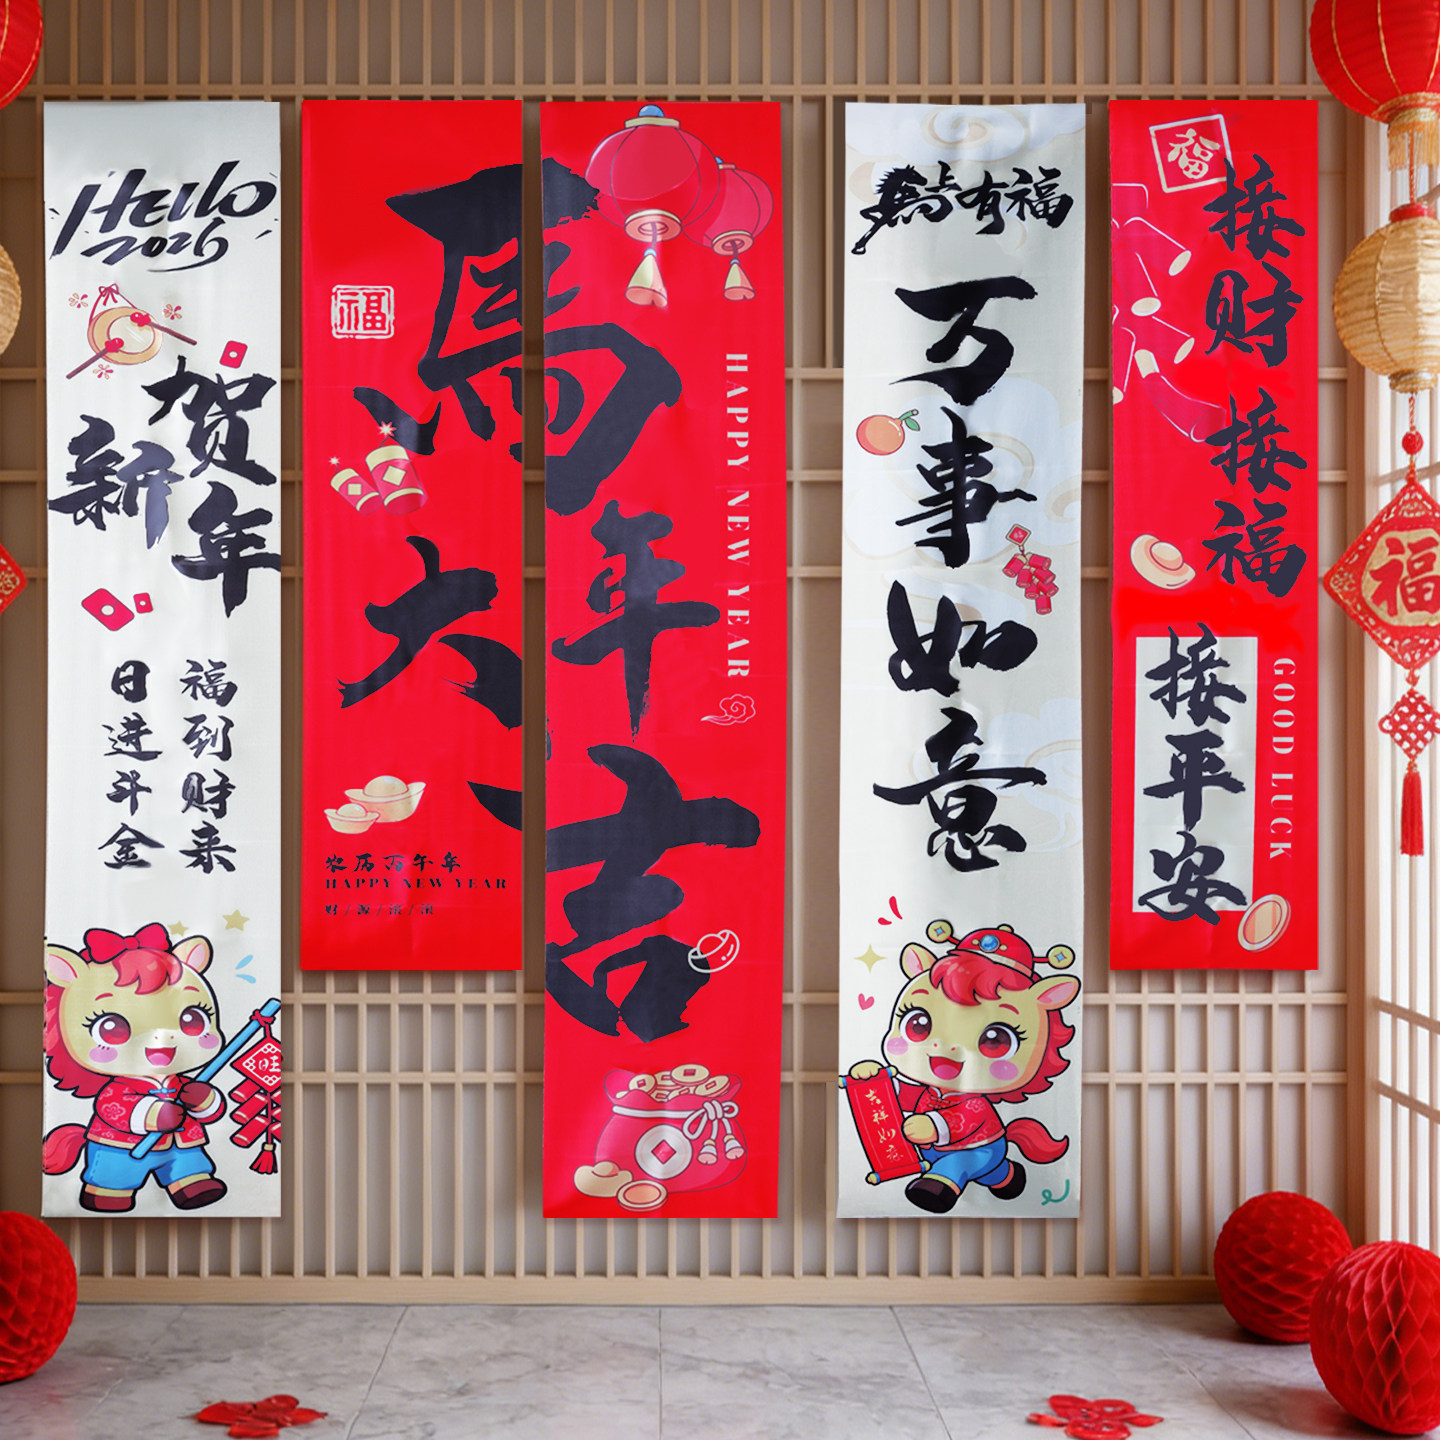 Hello
2026
贺新年
福到财来
日进斗金
旺
福
馬年大吉
农历丙午年
HAPPY NEW YEAR
财/源/滚/滚
HAPPY NEW YEAR
馬上有福
万事如意
吉祥如意
福
接财
接福
接平安
GOOD LUCK
福